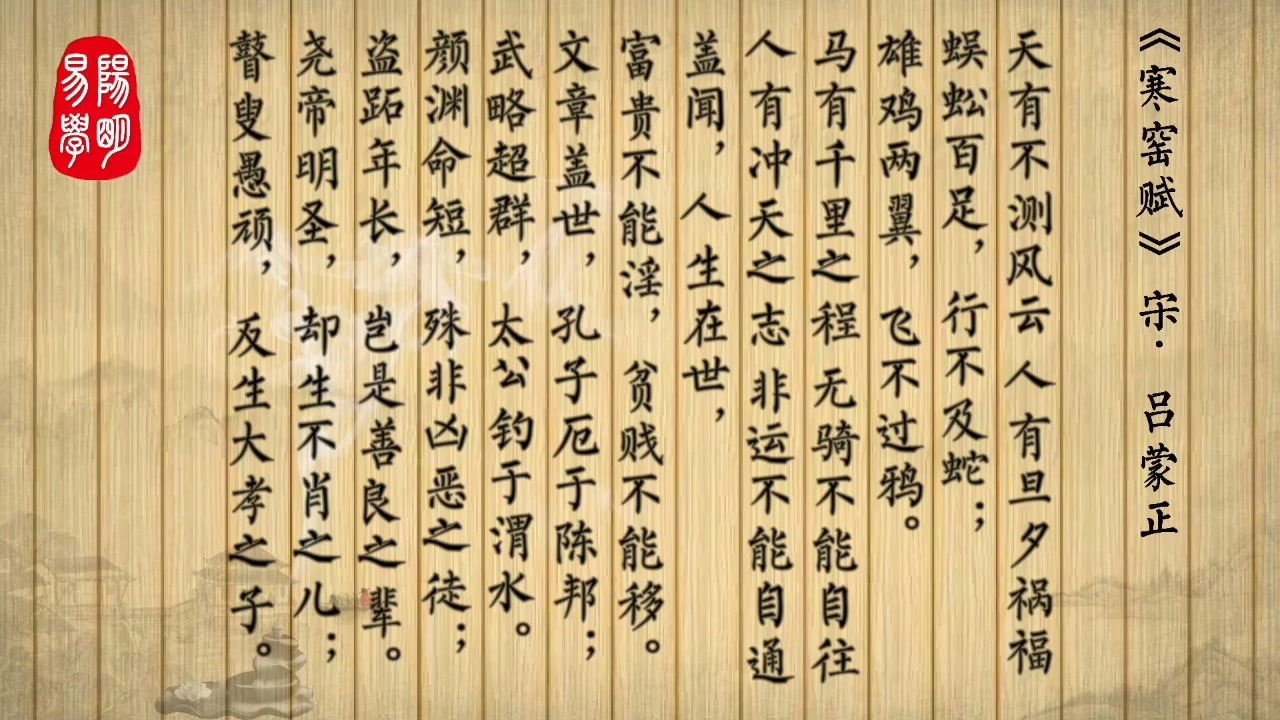 《寒窑赋》 宋· 吕蒙正
天有不测风云 人有旦夕祸福
蜈蚣百足，行不及蛇；
雄鸡两翼，飞不过鸦。
马有千里之程 无骑不能自往
人有冲天之志 非运不能自通
盖闻，人生在世，
富贵不能淫，贫贱不能移。
文章盖世，孔子厄于陈邦；
武略超群，太公钓于渭水。
颜渊命短，殊非凶恶之徒；
盗跖年长，岂是善良之辈。
尧帝明圣，却生不肖之儿；
瞽叟愚顽，反生大孝之子。
陽明
易學